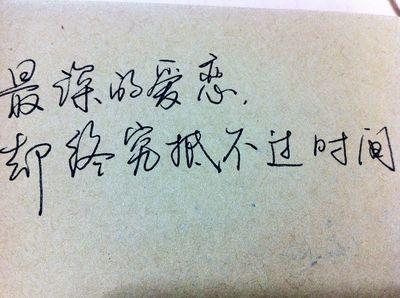 最深的爱恋,
却终究抵不过时间